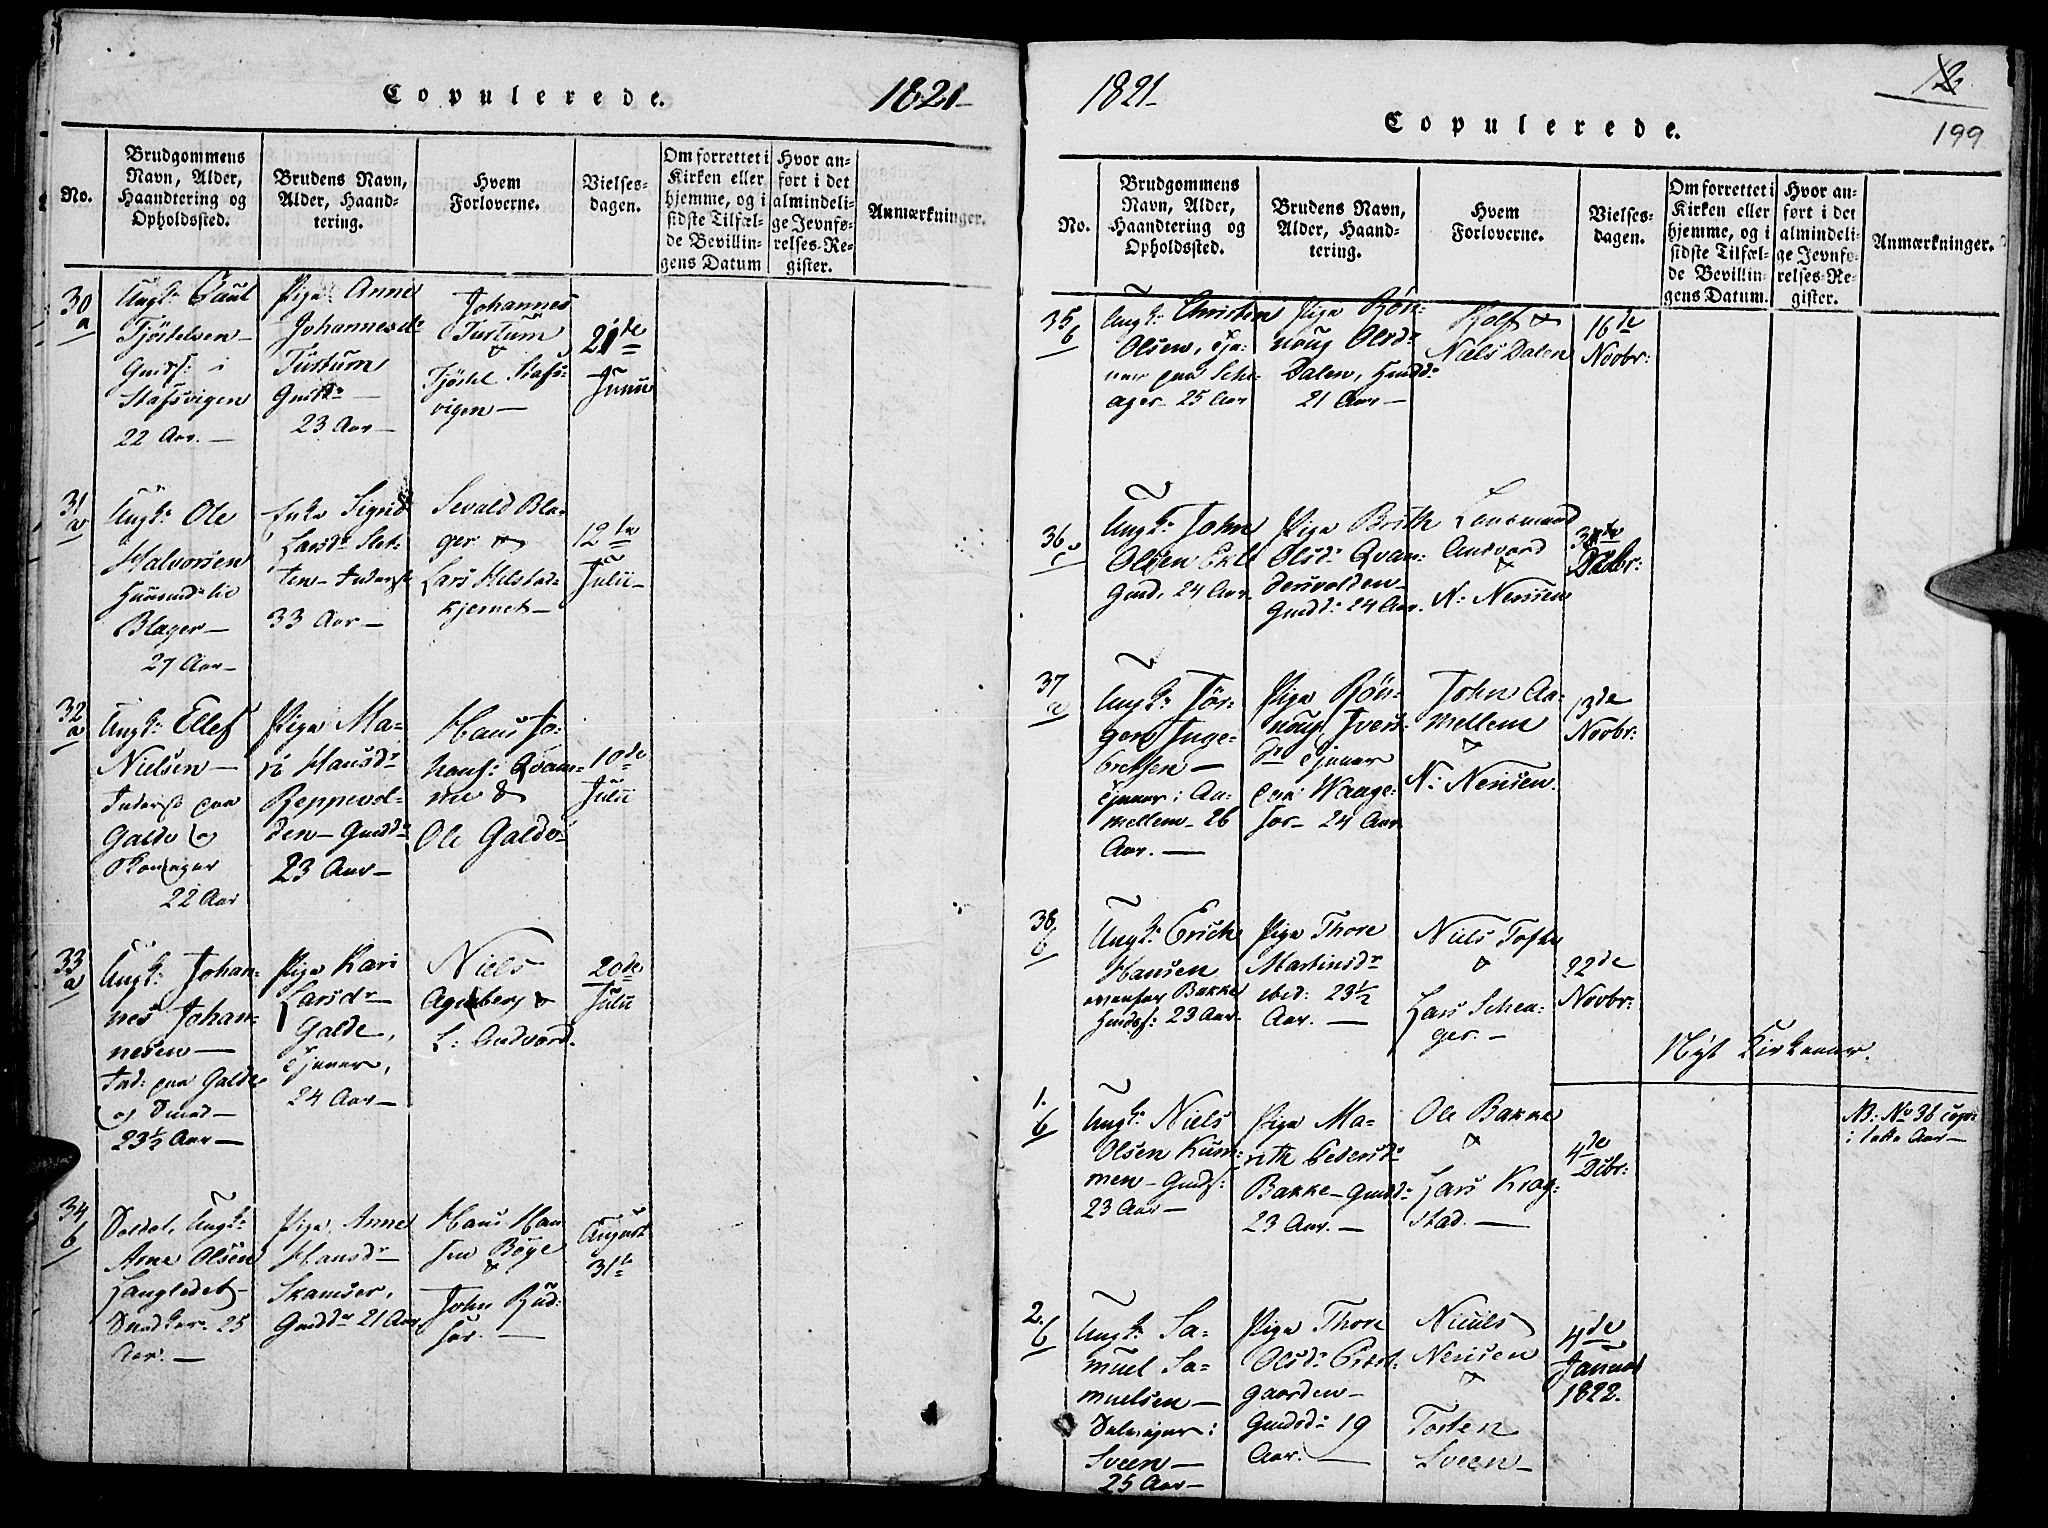 Copulerede. 1821
No.
Brudgommens
Navn, Alder,
Haandtering og
Opholdssted.
Brudens Navn,
Alder, Haand-
tering.
Hvem
Forloverne.
Vielses-
dagen.
Om forrettet i
Kirken eller
hjemme, og i
sidste Tilfæl-
de Bevillin-
gens Datum
Hvor an-
ført i det
almindeli-
ge Jevnfø-
relses-Re-
gister.
Anmærkninger.
30
a
Ungk: Poul
Tjöstelsen
Gmdsf: i
Stafsvigen
22 Aar. —
Pige Anne
Johannesdr
Turtum
23 Aar —
Johannes
Turtum
&
Tjöstel Stafs-
vigen —
21de
Junii
31
a
Ungk: Ole
Halvorsen
Blager —
27 Aar —
Enke Sigrid
Larsdr Slet-
ten — Inderst
33 Aar —
Sevald Bla-
ger &
Lars Kilstad-
kjernet —
12te
Julii —
32
a
Ungk: Ellef
Nielsen —
Inderst paa
Galde
22 Aar
Pige Ma-
ri Hansdr
Reppevol-
den — Gmdd:
23 Aar —
Hans Jo-
hans: Qvam-
me &
Ole Galde
10de
Julii
33
a
Ungk: Johan-
nes Johan-
nesen —
Ind: paa Galde
og Smed —
23½ Aar —
Pige Kari
Larsdr
Galde,
tjener,
24 Aar —
Niels
Ageberg &
L: Andvord.
20de
Julii
34
b
Soldat, Ungk:
Arne Olsen
Langledet —
25
Aar. —
Pige Anne
Hansdr
Skamser,
Gmdd: 21 Aar
Hans Han-
sen Böye
&
John Rud-
sar. —
August
31te
1821
12
199
Copulerede.
No.
Brudgommens
Navn, Alder,
Haandtering og
Opholdssted.
Brudens Navn,
Alder, Haand-
tering.
Hvem
Forloverne.
Vielses-
dagen.
Om forrettet i
Kirken eller
hjemme, og i
sidste Tilfæl-
de Bevillin-
gens Datum.
Hvor an-
ført i det
almindeli-
ge Jevnfø-
relses-Re-
gister.
Anmærkninger.
35
b
Ungk: Christen
Olsen, tje-
ner paa Sche-
ager — 25 Aar
Pige Rön-
noug Olsd:
Dalen, Huusd:
21 Aar —
Rolf &
Niels Dalen
16de
Novbr:
36
a
Ungk: John
Olsen Ekle
Gmd. 24 Aar.
Pige Brith
Olsd: Qvan-
dersvolden —
Gmdd: 24 Aar.
Lensmand
Andvord
&
N: Nerisen
Decbr:
37
a
Ungk: Jör-
gen Inge-
bretsen —
tjener i Aa-
mellem — 26
Aar. —
Pige Rön-
noug Ivers-
dr tjener
paa Waage-
sar — 24 Aar
John Aa-
mellem
&
N: Nerisen.
13de
Novbr:
38
b
Ungk: Erich
Hansen
ovenfor Bakke
Huusf: 23 Aar.
Pige Thore
Martinsdr
ibid: 23½
Aar. —
Niels Tofte
&
Lars Schea-
ger. —
22de
Novbr:
Nyt Kirkeaar.
1.
b
Ungk: Niels
Olsen Kum-
men — Gmdsf:
23 Aar —
Pige Ma-
rith Pedersd:
Bakke — Gmdd:
23 Aar. —
Ole Bakke
&
Lars Krog-
stad. —
4de
Dcbr:
NB: No 36 cop:
i dette Aar —
2.
b
Ungk: Sa-
muel Sa-
muelsen —
Sveen —
25 Aar —
Pige Thore
Olsd: Præst-
gaarden —
Gmdsd: 19
Aar. —
Niels
Nerisen
&
Tosten
Sveen —
4de
Januar
1822.